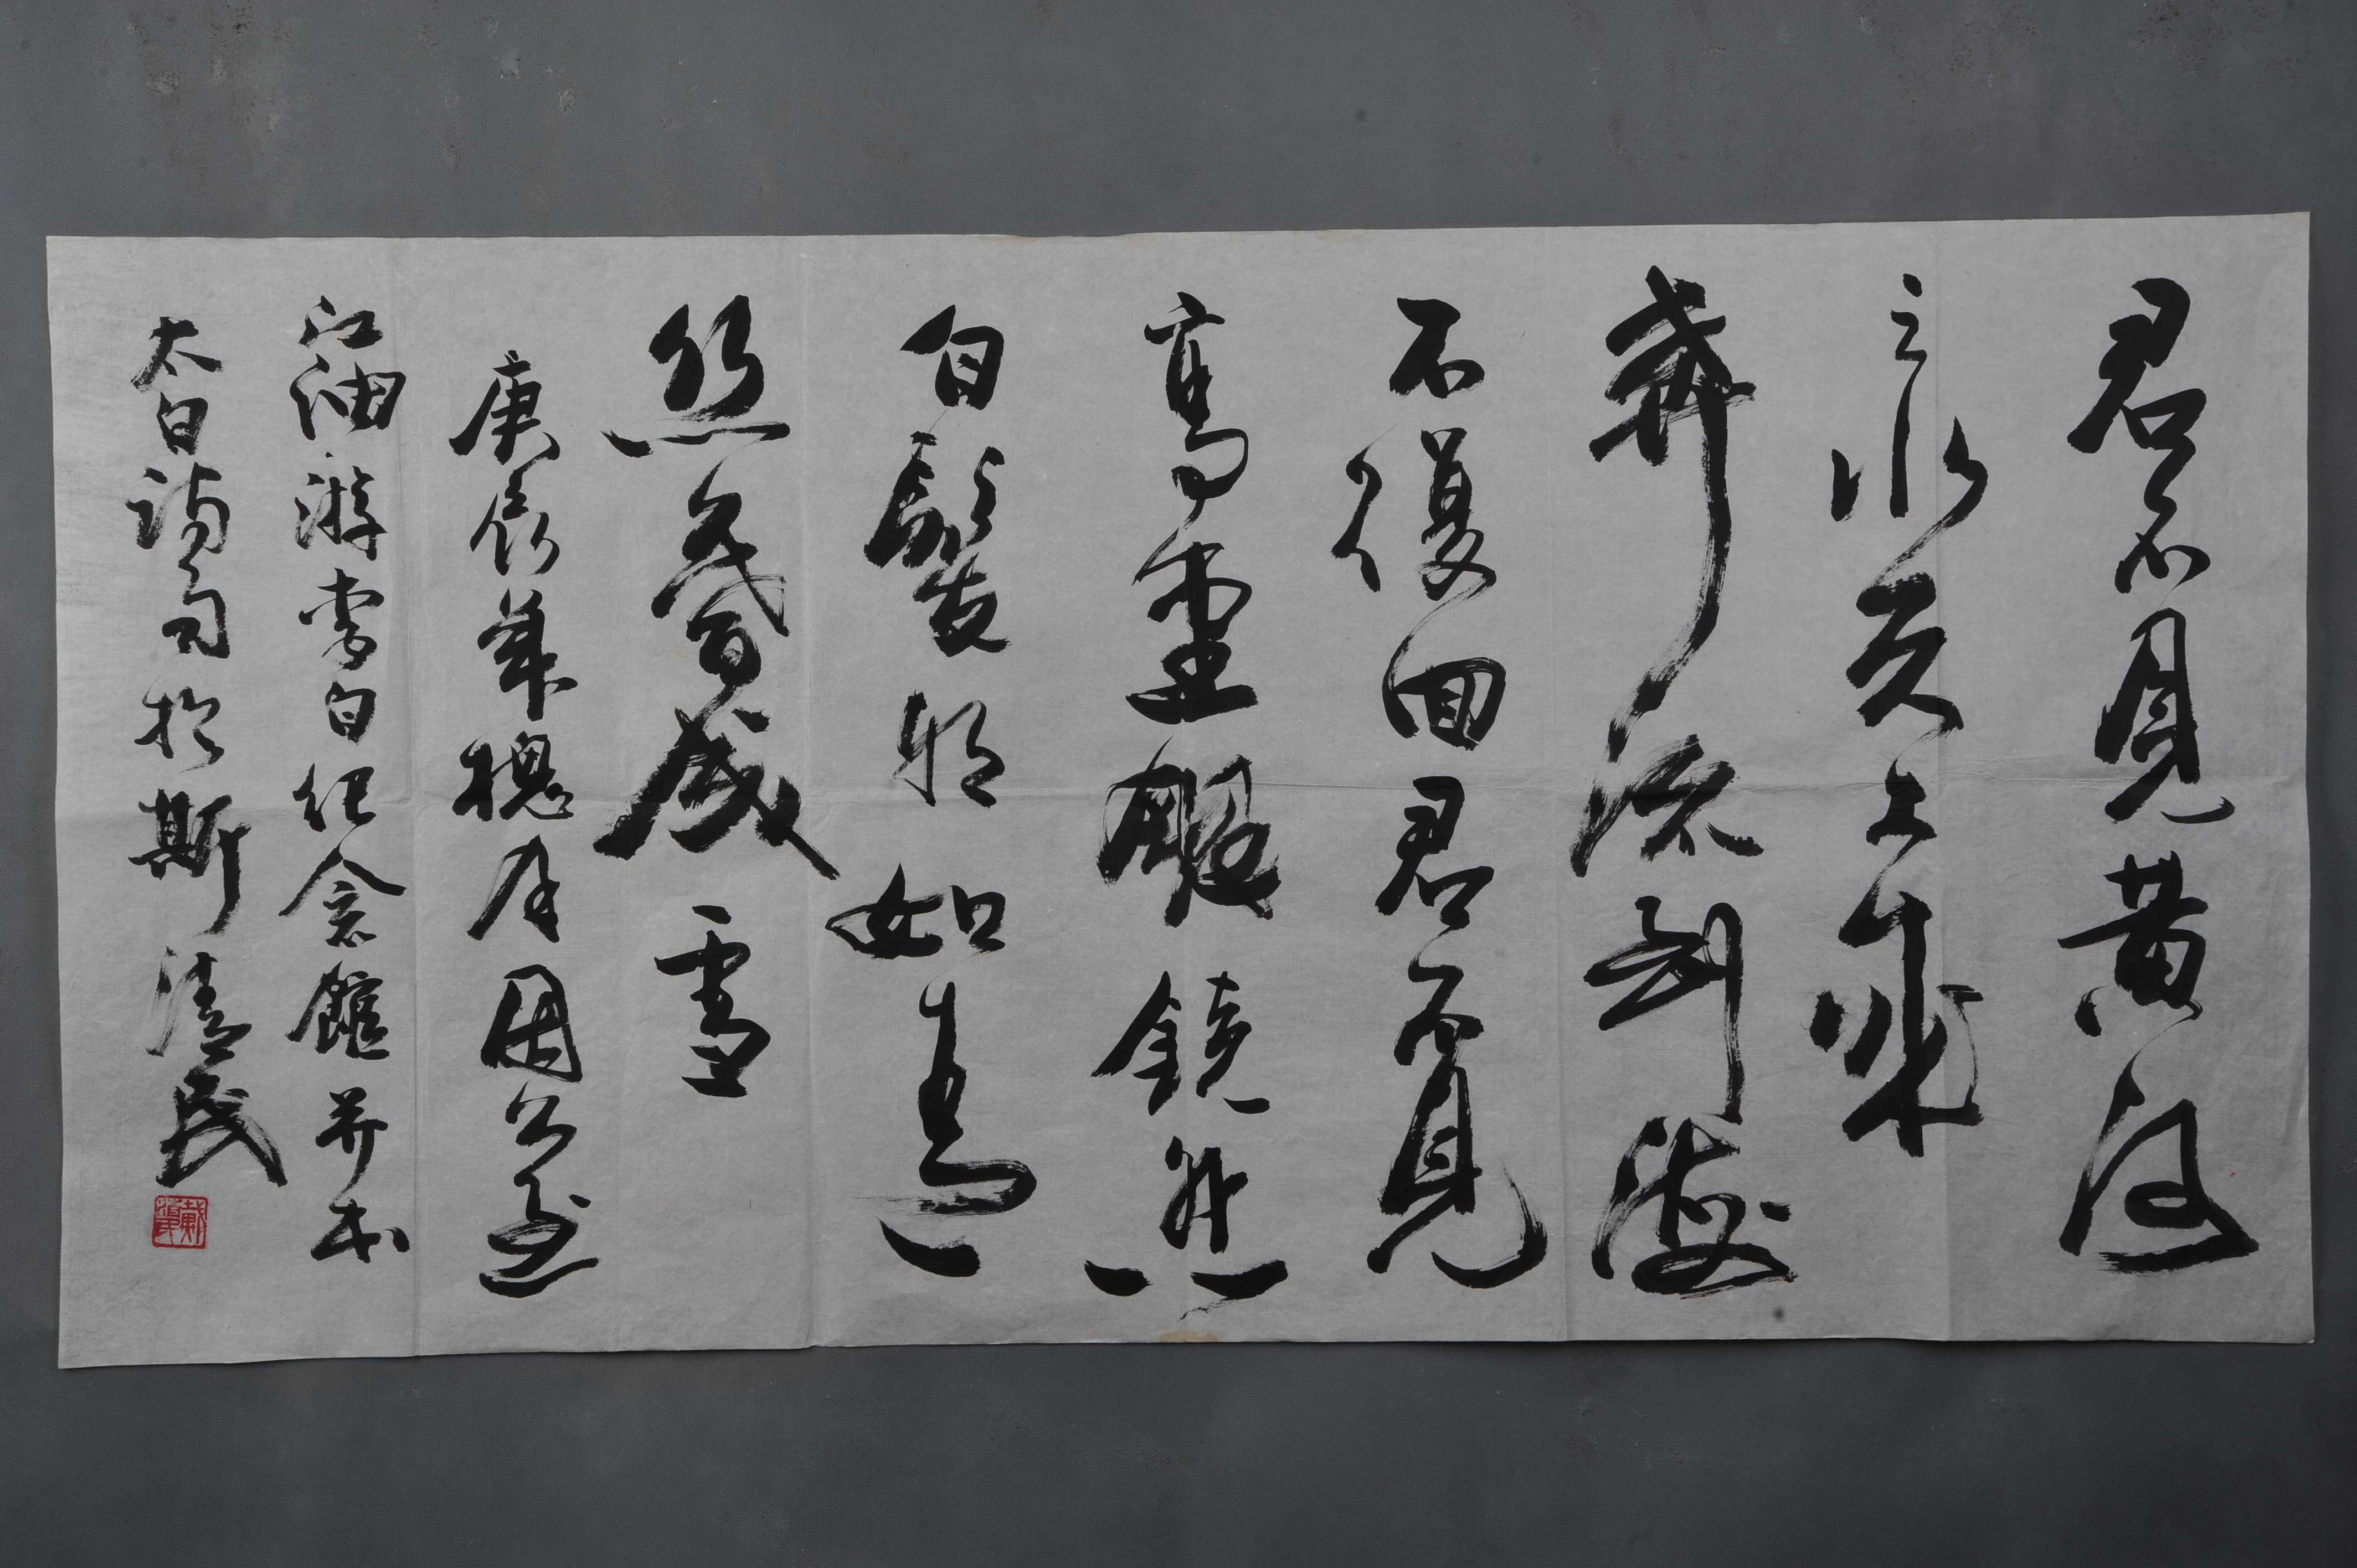 君不見黃河
之水天上來
奔流到海
不復回君不見
高堂明鏡悲
白髮朝如青
絲暮成雪
庚辰年槐月因公至
江油游李白纪念館并书
太白詩句於斯清民